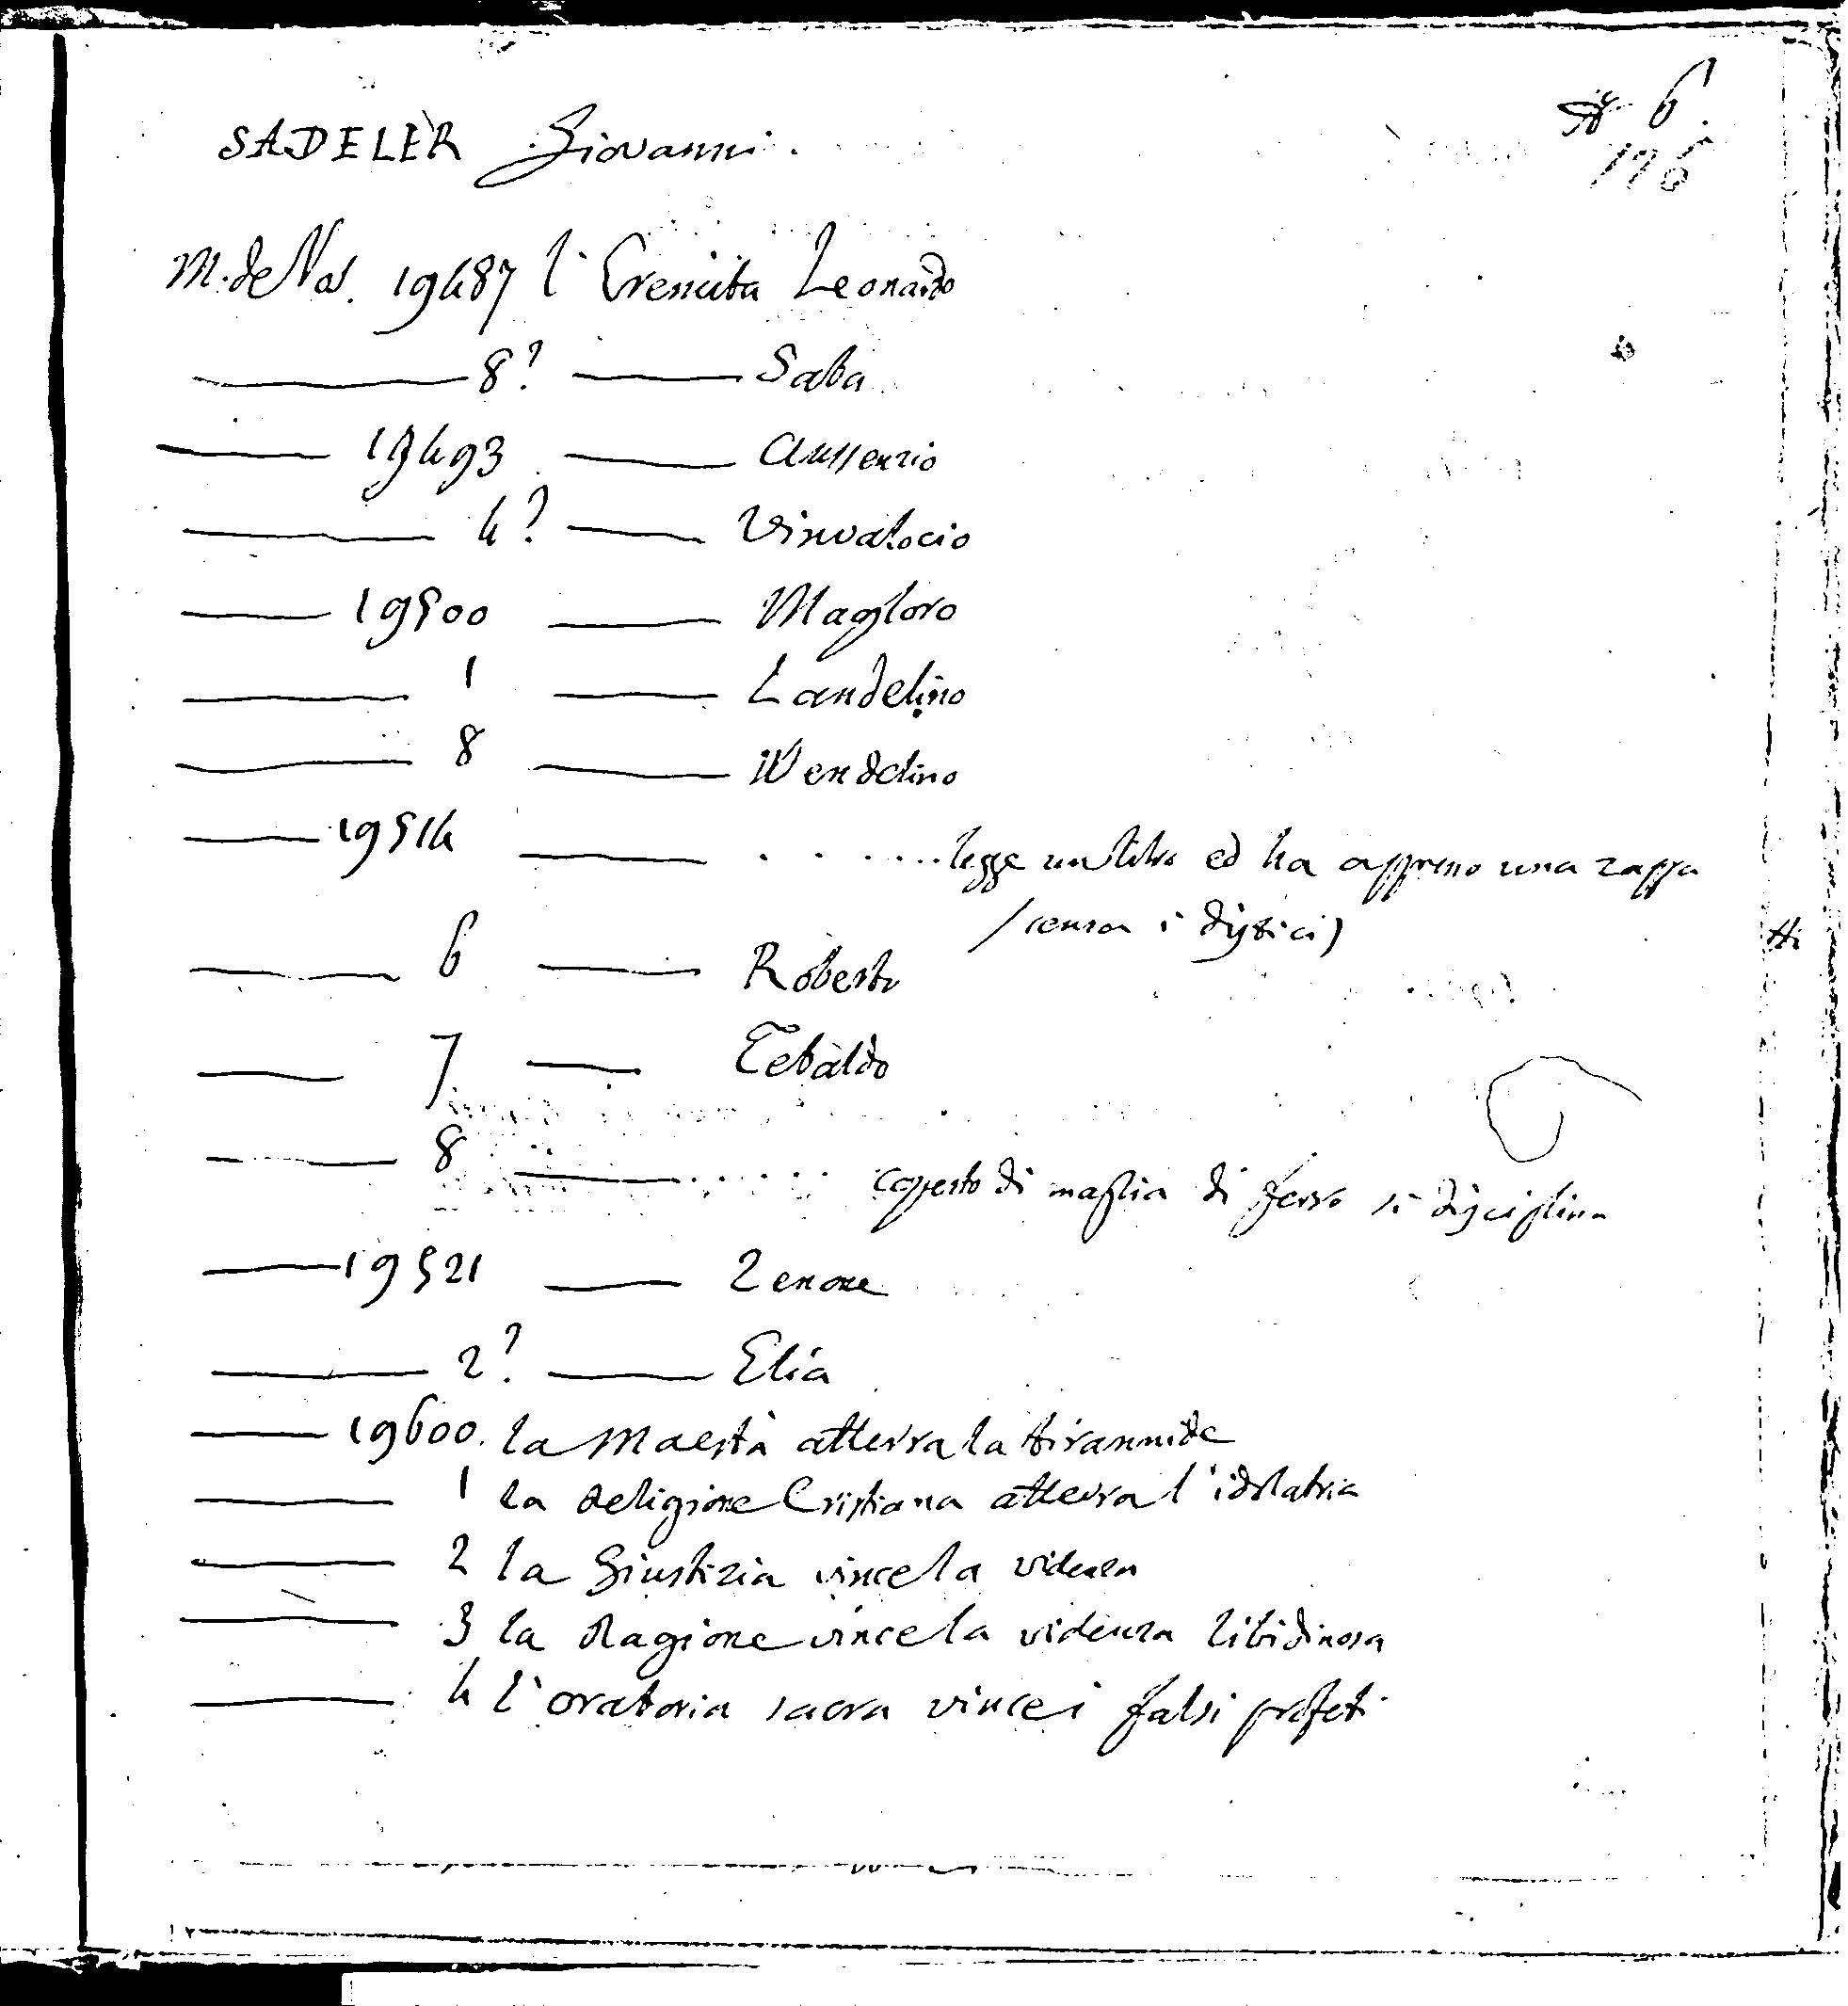 6.
176
SADELER Giovanni.
M. de Vos. 19487 l'Eremita Leonardo
——— 8? ——— Saba
——— 19493 ——— Aussenzio
——— 4? ——— Vinvalocio
——— 19500 ——— Magloro
——— 1 ——— Landelino
——— 8 ——— Wendelino
——— 19514 ——— . . . . . . legge un libro ed ha appreno una zappa
(senza i distici)
——— 6 ——— Roberto
——— 7 ——— Tebaldo
——— 8 ——— . . . . . coperto di maglia di ferro si disciplina
——— 19521 ——— Zenone
——— 2? ——— Elia
——— 19600. la Maestà atterra la tirannide
——— 1 la Religione Cristiana atterra l'idolatria
——— 2 la Giustizia vince la violenza
——— 3 la Ragione vince la violenza libidinosa
——— 4 l'oratoria sacra vince i falsi profeti